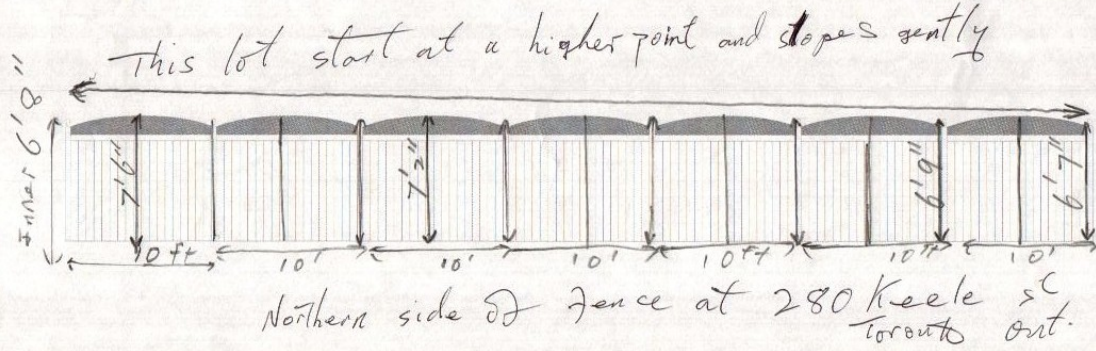 This lot start at a higher point and slopes gently
Inner 6'8"
7'6"
7'2"
6'9"
6'7"
10 ft
10'
10'
10'
10 ft
10 ft
10'
Northern side of fence at 280 Keele st
Toronto Ont.